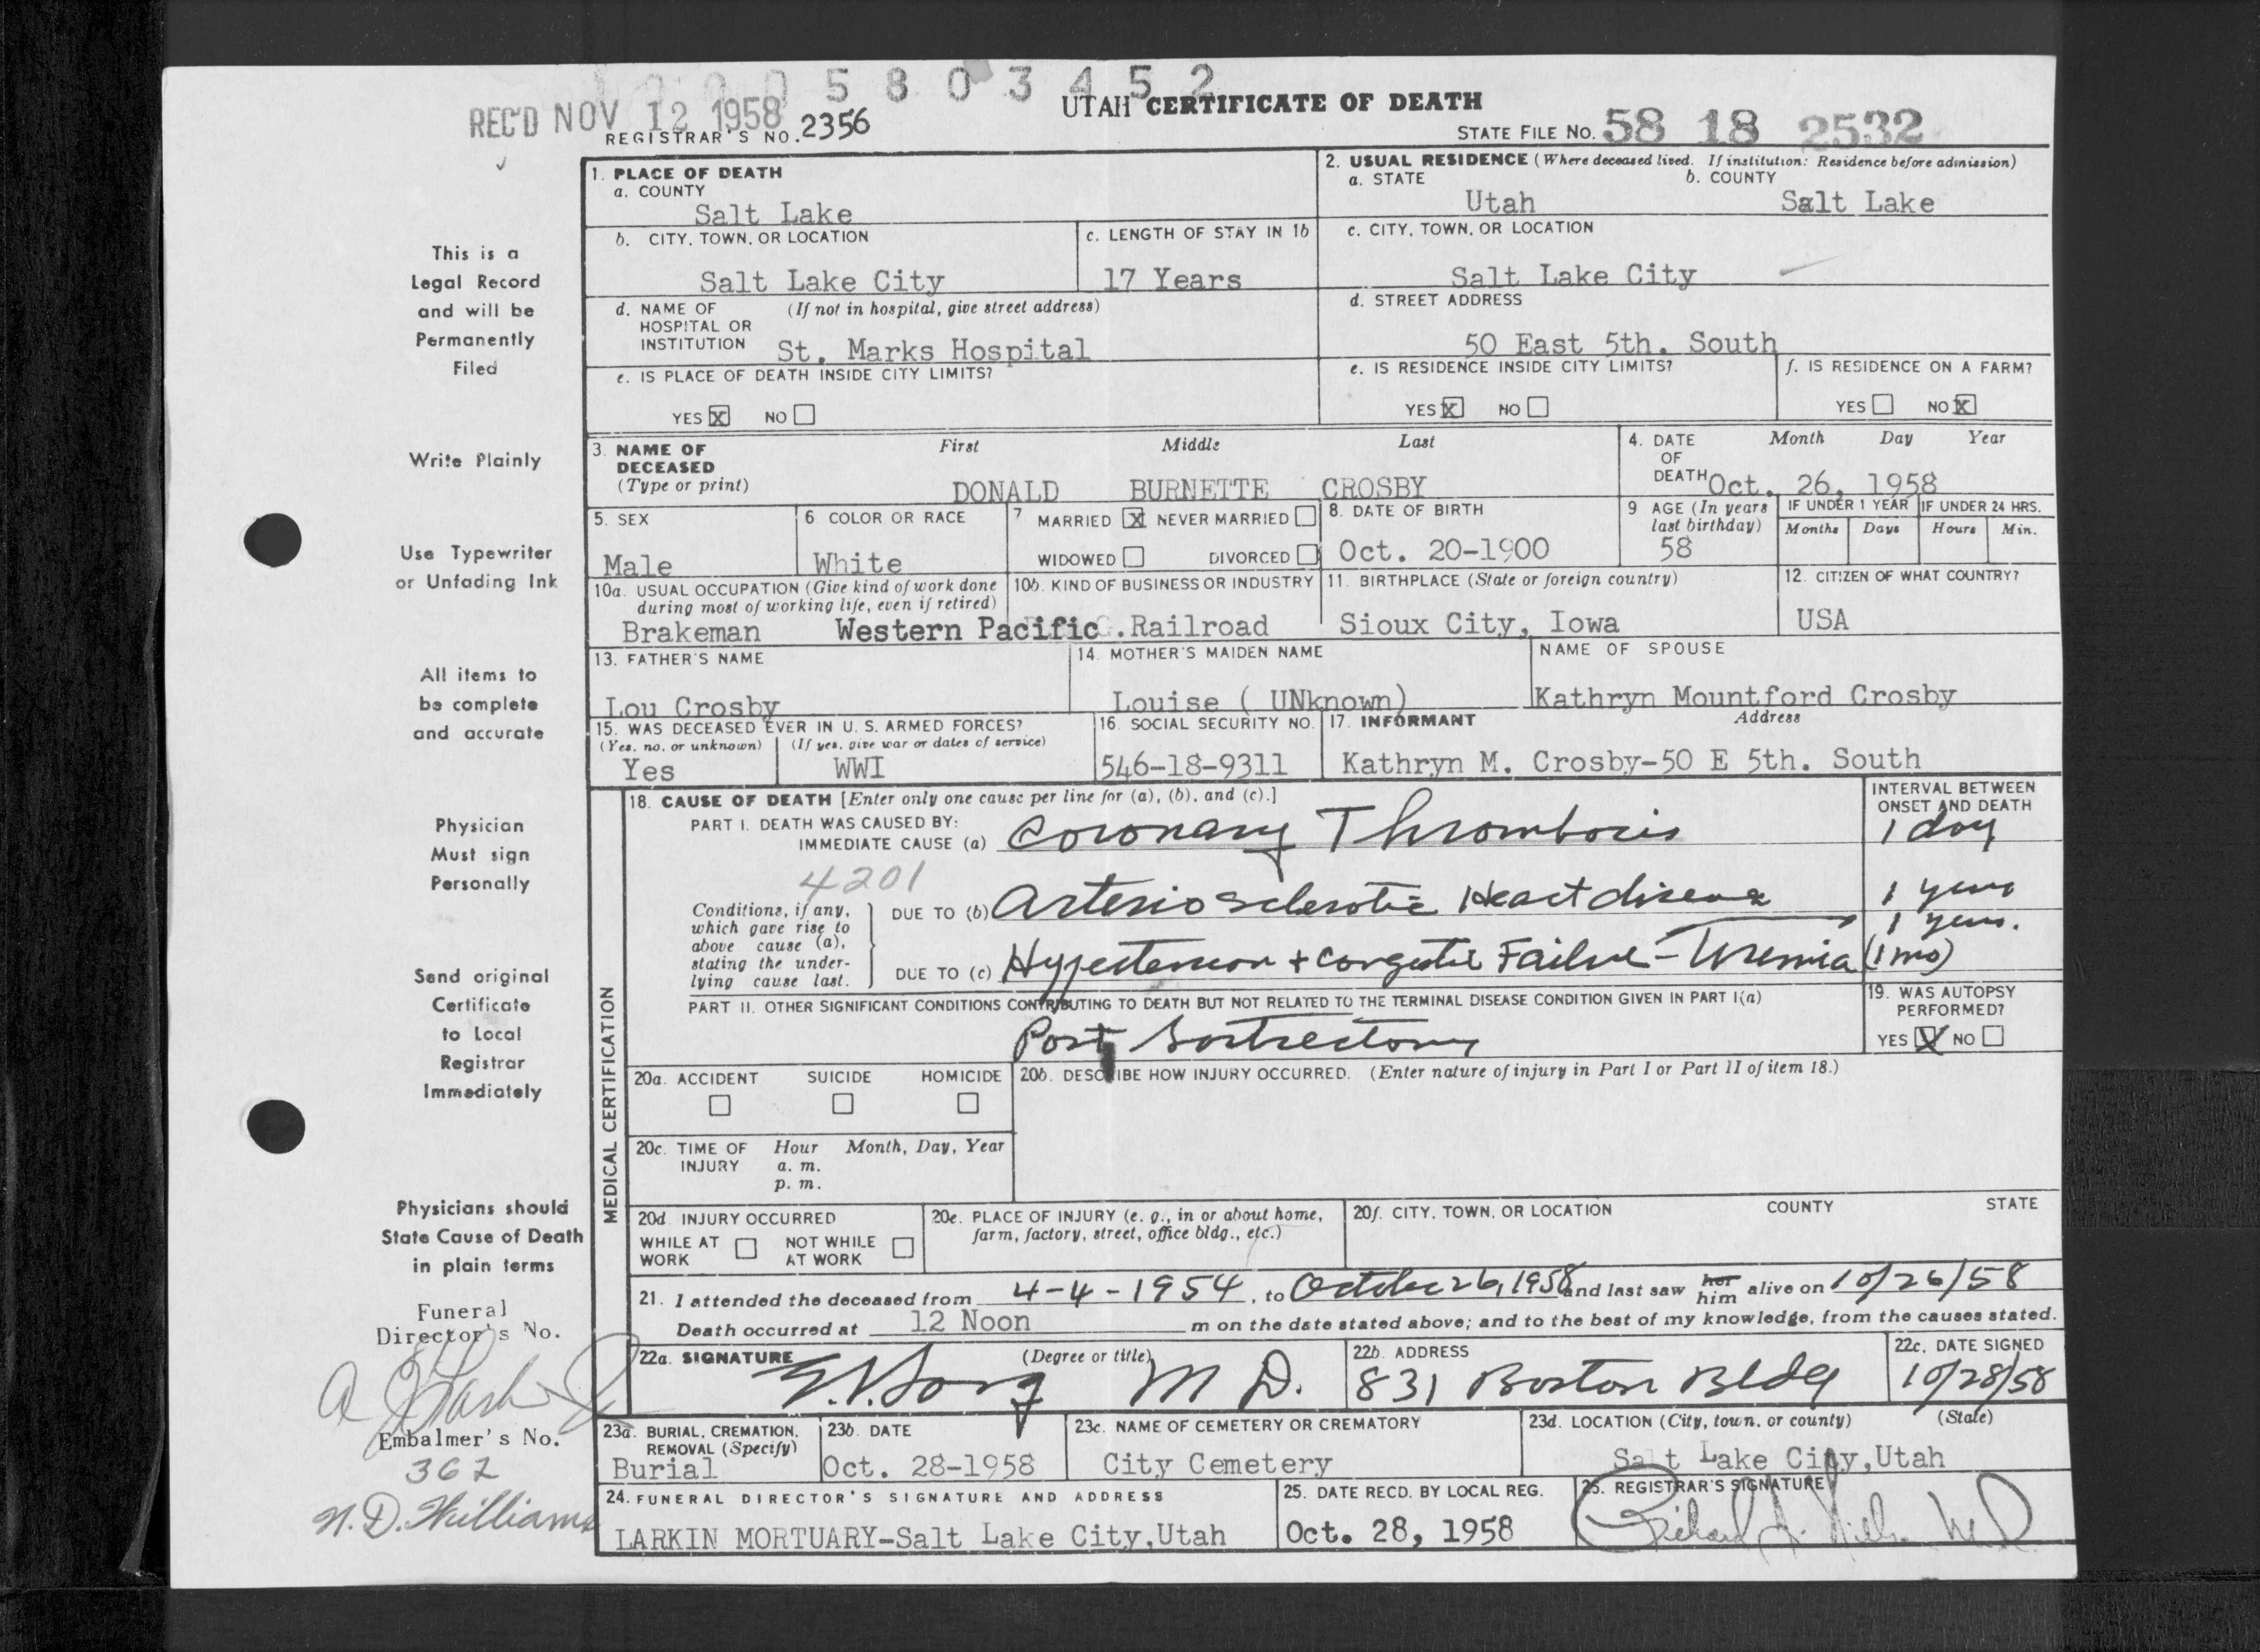 5 8 0 3 4 5 2
REC'D NOV 12 1958
UTAH CERTIFICATE OF DEATH
REGISTRAR'S NO. 2356
STATE FILE NO. 58 18 2532
1. PLACE OF DEATH
a. COUNTY
Salt Lake
2. USUAL RESIDENCE (Where deceased lived. If institution: Residence before admission)
a. STATE b. COUNTY
Utah Salt Lake
b. CITY, TOWN, OR LOCATION
Salt Lake City
c. LENGTH OF STAY IN 1b
17 Years
c. CITY, TOWN, OR LOCATION
Salt Lake City
d. NAME OF HOSPITAL OR INSTITUTION (If not in hospital, give street address)
St. Marks Hospital
d. STREET ADDRESS
50 East 5th. South
e. IS PLACE OF DEATH INSIDE CITY LIMITS?
YES X NO
e. IS RESIDENCE INSIDE CITY LIMITS?
YES X NO
f. IS RESIDENCE ON A FARM?
YES NO X
3. NAME OF DECEASED (Type or print)
First Middle Last
DONALD BURNETTE CROSBY
4. DATE OF DEATH Month Day Year
Oct. 26, 1958
5. SEX
Male
6 COLOR OR RACE
White
7 MARRIED X NEVER MARRIED
WIDOWED DIVORCED
8. DATE OF BIRTH
Oct. 20-1900
9 AGE (In years last birthday)
58
IF UNDER 1 YEAR
Months Days
IF UNDER 24 HRS.
Hours Min.
10a. USUAL OCCUPATION (Give kind of work done during most of working life, even if retired)
Brakeman
10b. KIND OF BUSINESS OR INDUSTRY
Western Pacific .Railroad
11. BIRTHPLACE (State or foreign country)
Sioux City, Iowa
12. CITIZEN OF WHAT COUNTRY?
USA
13. FATHER'S NAME
Lou Crosby
14. MOTHER'S MAIDEN NAME
Louise ( UNknown)
NAME OF SPOUSE
Kathryn Mountford Crosby
15. WAS DECEASED EVER IN U. S. ARMED FORCES?
(Yes, no, or unknown) (If yes, give war or dates of service)
Yes WWI
16. SOCIAL SECURITY NO.
546-18-9311
17. INFORMANT Address
Kathryn M. Crosby-50 E 5th. South
MEDICAL CERTIFICATION
18. CAUSE OF DEATH [Enter only one cause per line for (a), (b), and (c).]
INTERVAL BETWEEN ONSET AND DEATH
PART I. DEATH WAS CAUSED BY:
IMMEDIATE CAUSE (a) Coronary Thrombosis 1 day
4201
Conditions, if any, which gave rise to above cause (a), stating the underlying cause last.
DUE TO (b) Arteriosclerotic Heart disease 1 year
1 year.
DUE TO (c) Hypertension + congestive Failure - Uremia (1 mo)
PART II. OTHER SIGNIFICANT CONDITIONS CONTRIBUTING TO DEATH BUT NOT RELATED TO THE TERMINAL DISEASE CONDITION GIVEN IN PART I(a)
Post Gastrectomy
19. WAS AUTOPSY PERFORMED?
YES X NO
20a. ACCIDENT SUICIDE HOMICIDE
20b. DESCRIBE HOW INJURY OCCURRED. (Enter nature of injury in Part I or Part II of item 18.)
20c. TIME OF INJURY Hour Month, Day, Year
a. m.
p. m.
20d. INJURY OCCURRED
WHILE AT WORK NOT WHILE AT WORK
20e. PLACE OF INJURY (e. g., in or about home, farm, factory, street, office bldg., etc.)
20f. CITY, TOWN, OR LOCATION COUNTY STATE
21. I attended the deceased from 4-4-1954, to October 26, 1958 and last saw her him alive on 10/26/58
Death occurred at 12 Noon m on the date stated above; and to the best of my knowledge, from the causes stated.
22a. SIGNATURE (Degree or title)
M D.
22b. ADDRESS
831 Boston Bldg
22c. DATE SIGNED
10/28/58
23a. BURIAL, CREMATION, REMOVAL (Specify)
Burial
23b. DATE
Oct. 28-1958
23c. NAME OF CEMETERY OR CREMATORY
City Cemetery
23d. LOCATION (City, town, or county) (State)
Salt Lake City,Utah
24. FUNERAL DIRECTOR'S SIGNATURE AND ADDRESS
LARKIN MORTUARY-Salt Lake City,Utah
25. DATE RECD. BY LOCAL REG.
Oct. 28, 1958
26. REGISTRAR'S SIGNATURE
Richard
This is a
Legal Record
and will be
Permanently
Filed
Write Plainly
Use Typewriter
or Unfading Ink
All items to
be complete
and accurate
Physician
Must sign
Personally
Send original
Certificate
to Local
Registrar
Immediately
Physicians should
State Cause of Death
in plain terms
Funeral
Director's No.
Embalmer's No.
362
N. D. Williams